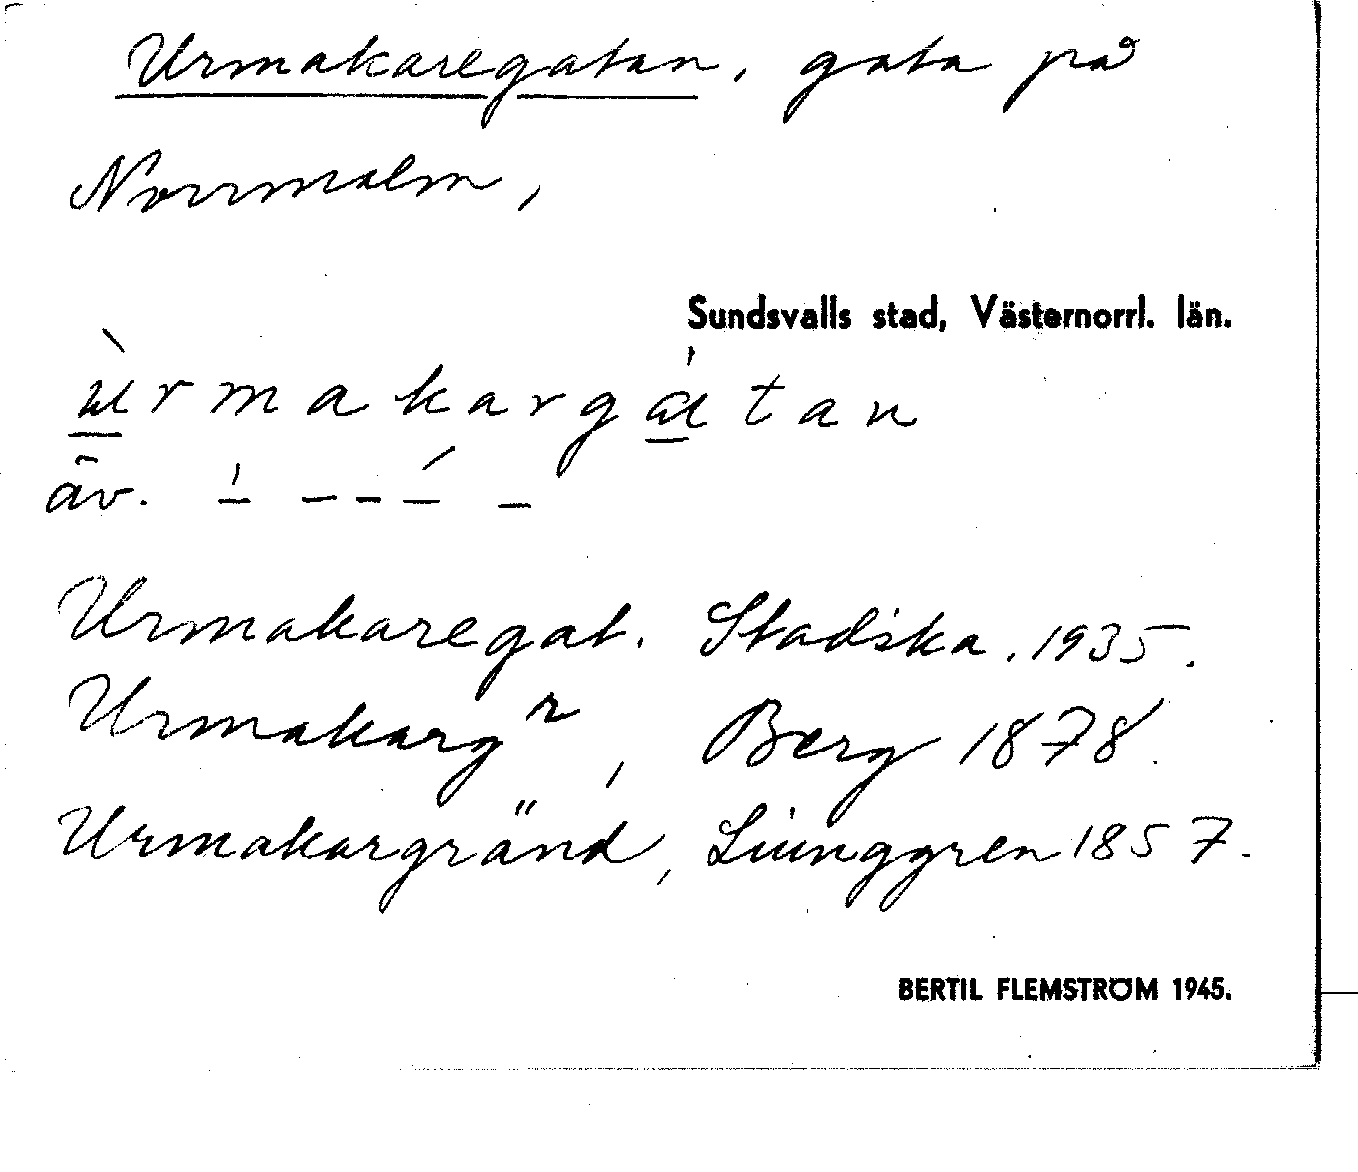 Urmakaregatan, gata på
Norrmalm,
Sundsvalls stad, Västernorrl. län.
ùrmakargátan
äv. ' – – – ´ –
Urmakaregat. Stadska. 1935.
Urmakargr, Berg 1878.
Urmakargränd, Liunggren 1857.
BERTIL FLEMSTRÖM 1945.